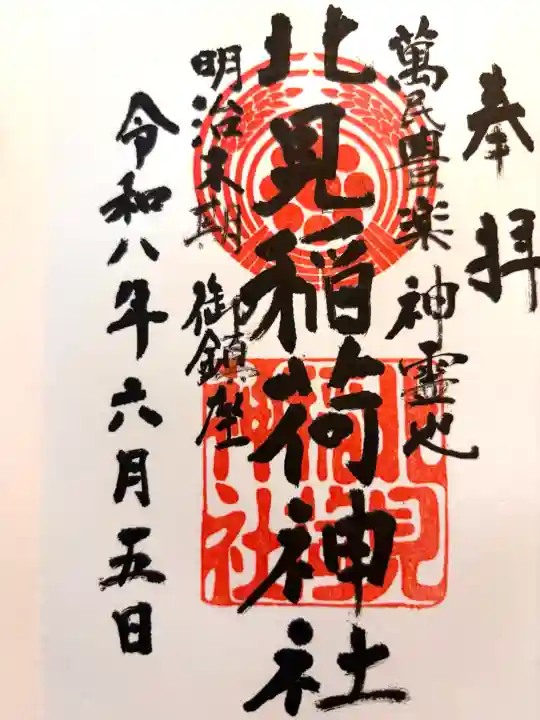 奉拝
萬民豊楽 神霊也
北見稲荷神社
明治末期 御鎮座
令和八年六月五日
北見
稲荷
神社